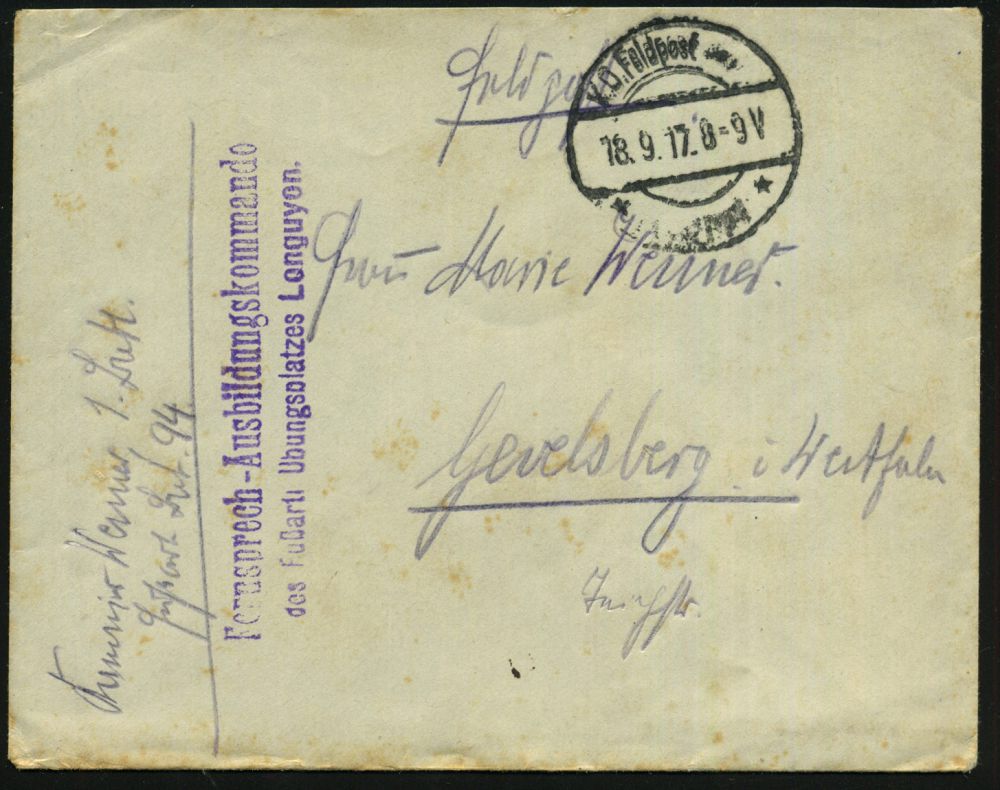 Feldpost
K.D. Feldpost
18.9.17. 8-9 V
Frau Marie Wenner.
Gevelsberg i Westfalen
Fernsprech-Ausbildungskommando
des Fußarti Übungsplatzes Longuyon.
Wenner 1.
94.